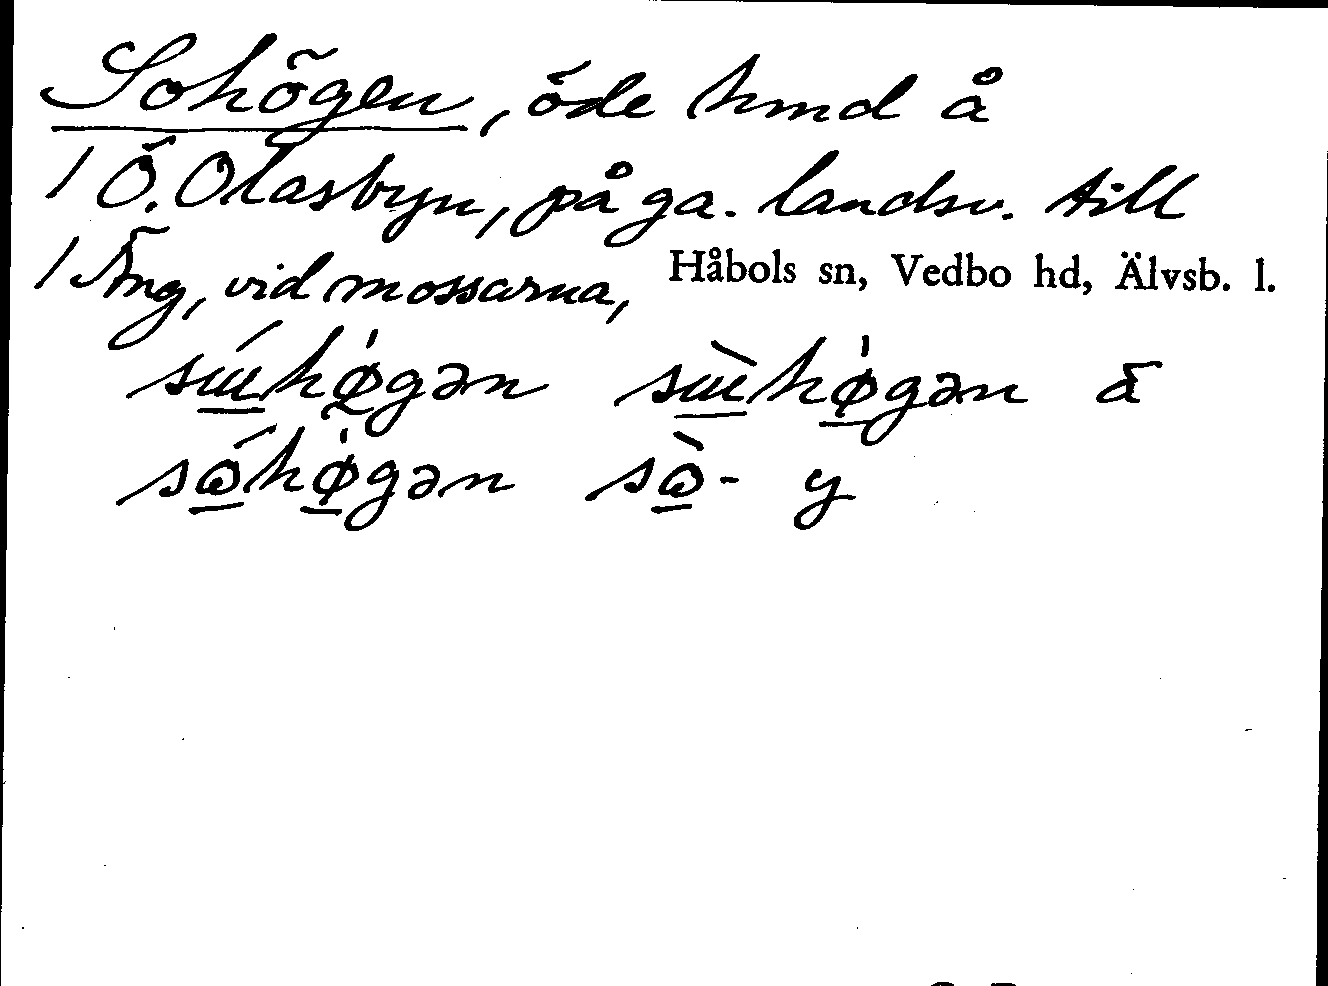 Sohögen, öde hmd å
/ Ö. Olasbyn, på ga. landsv. till
/ Äng, vid mossarna,
Håbols sn, Vedbo hd, Älvsb. l.
sɯ́hø̀gən sɯ̀hø̀gən ä
sóhø̀gən sò- y